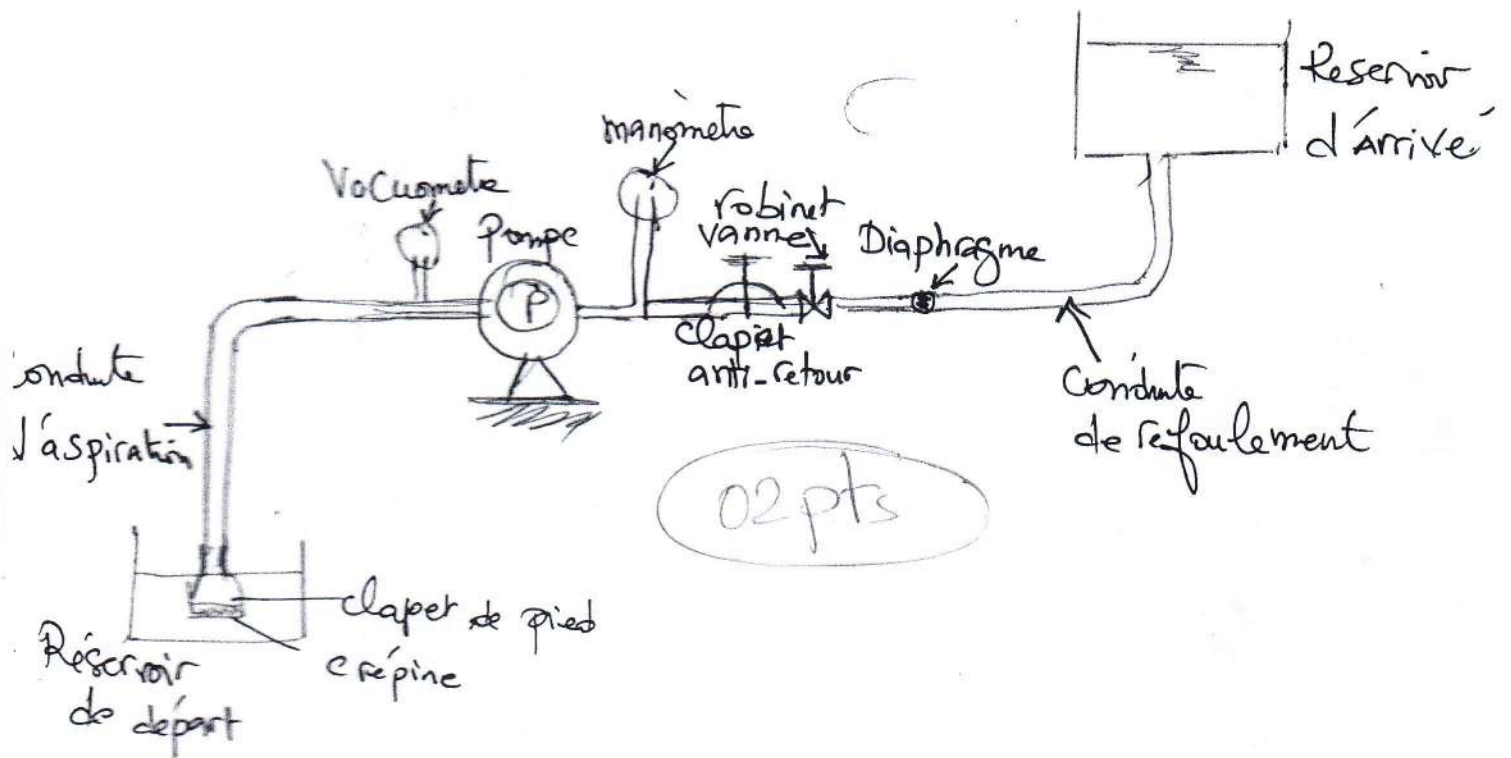 Reservoir
d'Arrivé
manomètre
Vacuometre
Pompe
robinet
vanne
Diaphragme
P
clapet
anti-retour
onduite
d'aspiration
Conduite
de refoulement
02 pts
clapet de pied
crépine
Réservoir
de départ